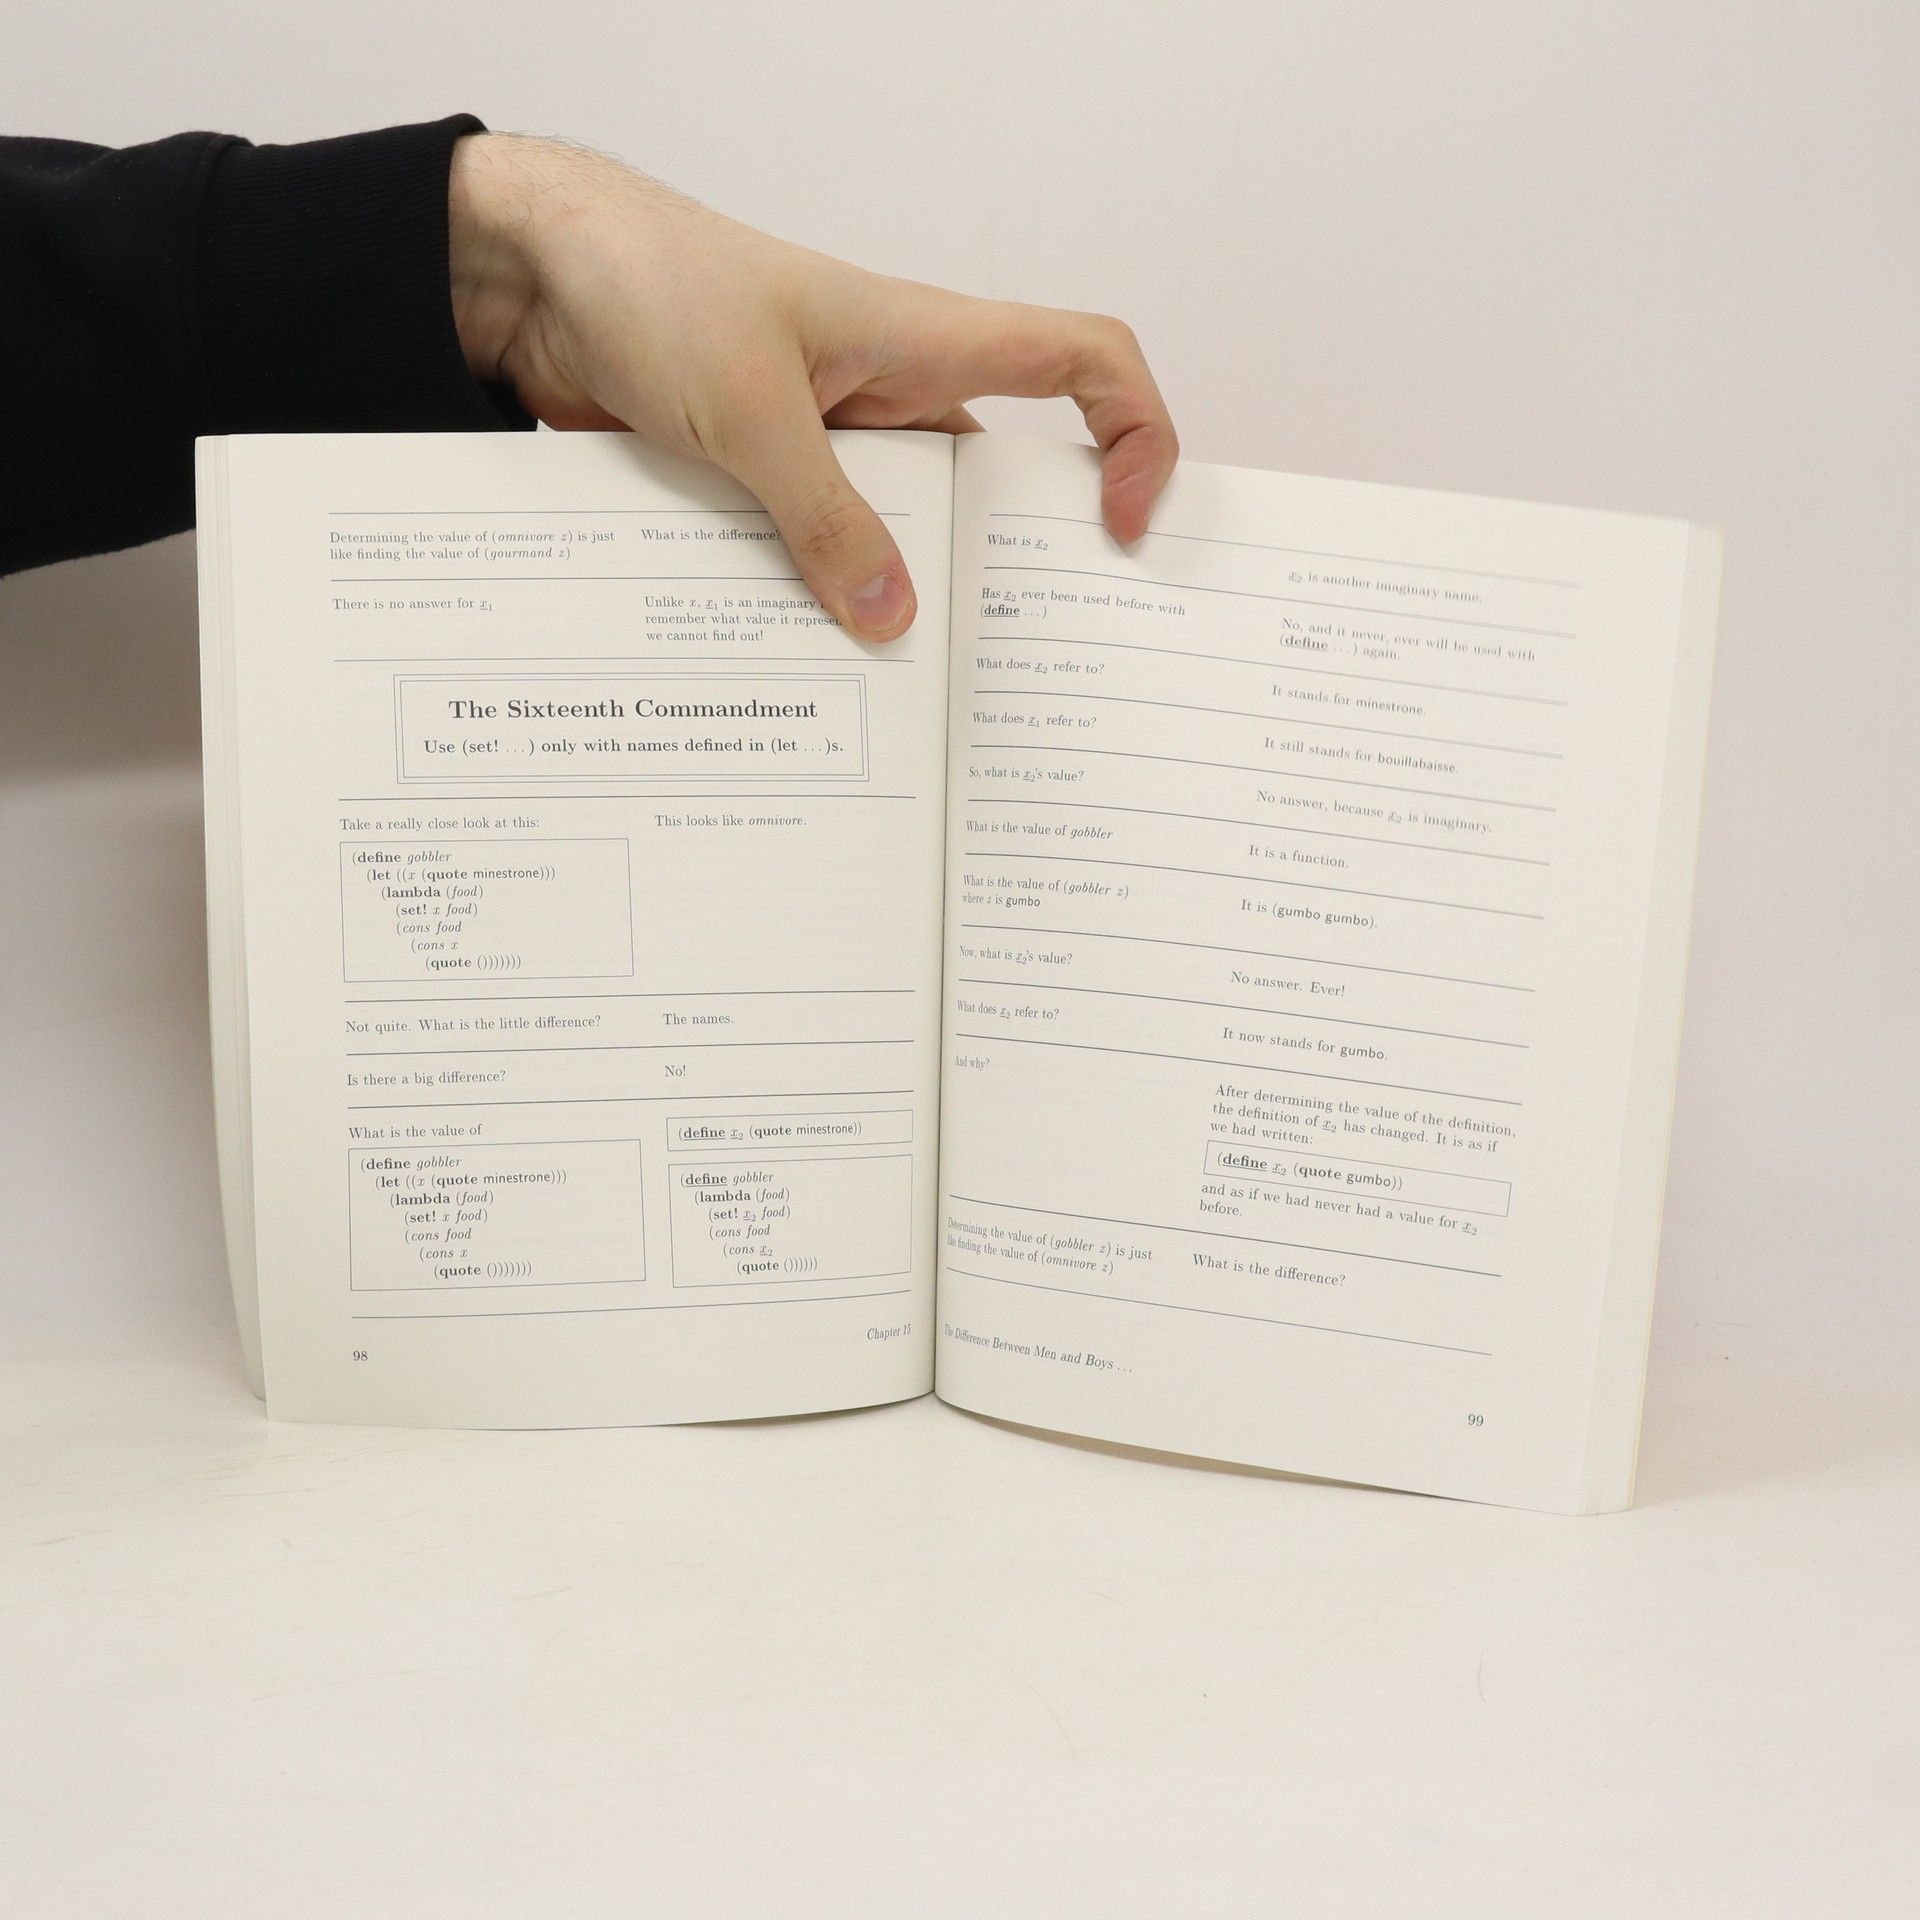 Determining the value of (omnivore z) is just
like finding the value of (gourmand z)
What is the difference?
There is no answer for x1
Unlike x, x1 is an imaginary
remember what value it
we cannot find out!
The Sixteenth Commandment
Use (set! ...) only with names defined in (let ...)s.
Take a really close look at this:
(define gobbler
(let ((x (quote minestrone)))
(lambda (food)
(set! x food)
(cons food
(cons x
(quote ()))))))
This looks like omnivore.
Not quite. What is the little difference?
The names.
Is there a big difference?
No!
What is the value of
(define gobbler
(let ((x (quote minestrone)))
(lambda (food)
(set! x food)
(cons food
(cons x
(quote ()))))))
(define x2 (quote minestrone))
(define gobbler
(lambda (food)
(set! x2 food)
(cons food
(cons x2
(quote ())))))
98
Chapter 15
What is x2
x2 is another imaginary name.
Has x2 ever been used before with
(define ...)
No, and it never, ever will be used with
(define ...) again.
What does x2 refer to?
It stands for minestrone.
What does x1 refer to?
It still stands for bouillabaisse.
So, what is x2's value?
No answer, because x2 is imaginary.
What is the value of gobbler
It is a function.
What is the value of (gobbler z)
where z is gumbo
It is (gumbo gumbo).
Now, what is x2's value?
No answer. Ever!
What does x2 refer to?
It now stands for gumbo.
And why?
After determining the value of the definition,
the definition of x2 has changed. It is as if
we had written:
(define x2 (quote gumbo))
and as if we had never had a value for x2
before.
Determining the value of (gobbler z) is just
like finding the value of (omnivore z)
What is the difference?
The Difference Between Men and Boys ...
99